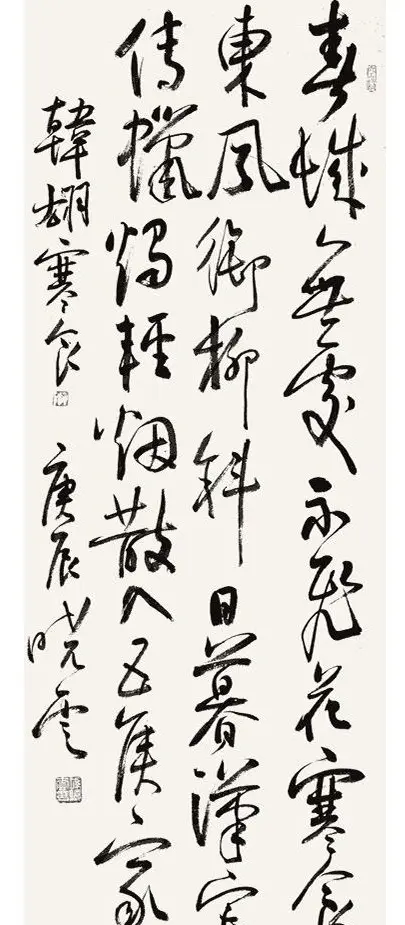 春城無處不飛花寒食
東風御柳斜日暮漢宮
傳蠟燭輕煙散入五侯家
韓翃寒食 庚辰曉雲